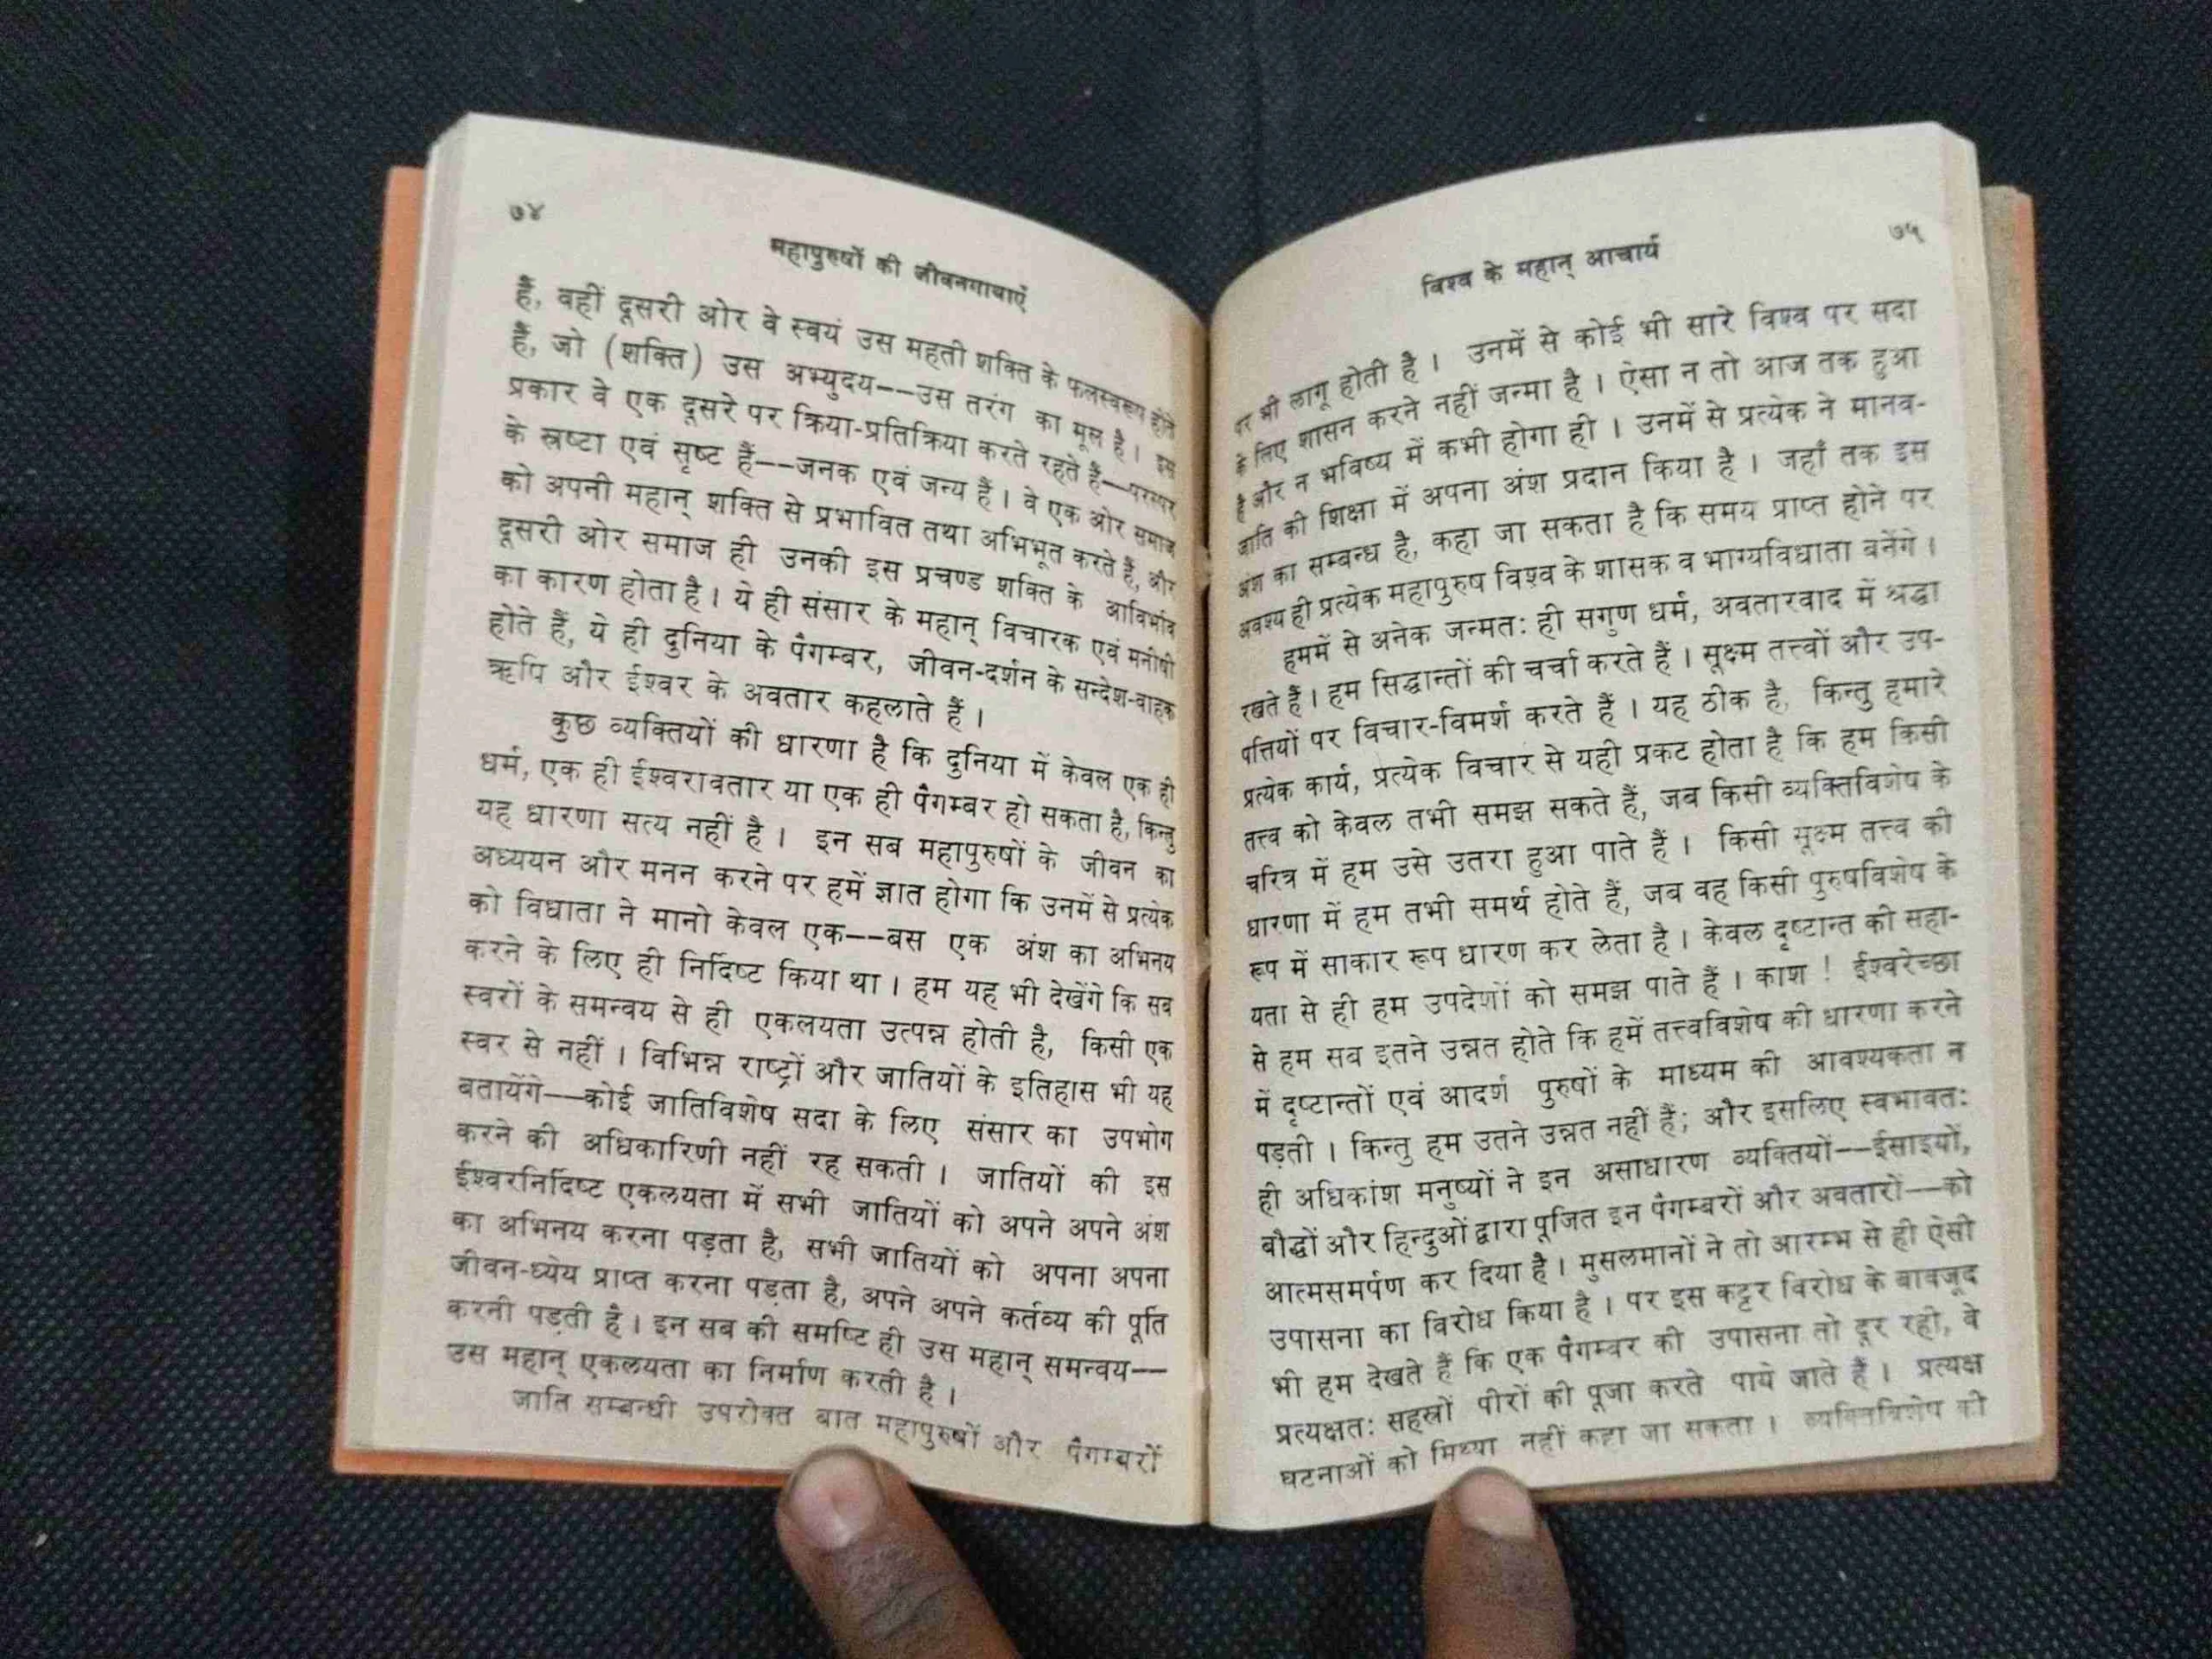 ७४
महापुरुषों की जीवनगाथाएँ
हैं, वहीं दूसरी ओर वे स्वयं उस महती शक्ति के फलस्वरूप होते
हैं, जो (शक्ति) उस अभ्युदय--उस तरंग का मूल है। इस
प्रकार वे एक दूसरे पर क्रिया-प्रतिक्रिया करते रहते हैं--परस्पर
के स्रष्टा एवं सृष्ट हैं--जनक एवं जन्य हैं। वे एक ओर समाज
को अपनी महान् शक्ति से प्रभावित तथा अभिभूत करते हैं, और
दूसरी ओर समाज ही उनकी इस प्रचण्ड शक्ति के आविर्भाव
का कारण होता है। ये ही संसार के महान् विचारक एवं मनीषी
होते हैं, ये ही दुनिया के पैगम्बर, जीवन-दर्शन के सन्देश-वाहक
ऋषि और ईश्वर के अवतार कहलाते हैं।
कुछ व्यक्तियों की धारणा है कि दुनिया में केवल एक ही
धर्म, एक ही ईश्वरावतार या एक ही पैगम्बर हो सकता है, किन्तु
यह धारणा सत्य नहीं है। इन सब महापुरुषों के जीवन का
अध्ययन और मनन करने पर हमें ज्ञात होगा कि उनमें से प्रत्येक
को विधाता ने मानो केवल एक--बस एक अंश का अभिनय
करने के लिए ही निर्दिष्ट किया था। हम यह भी देखेंगे कि सब
स्वरों के समन्वय से ही एकलयता उत्पन्न होती है, किसी एक
स्वर से नहीं। विभिन्न राष्ट्रों और जातियों के इतिहास भी यह
बतायेंगे--कोई जातिविशेष सदा के लिए संसार का उपभोग
करने की अधिकारिणी नहीं रह सकती। जातियों की इस
ईश्वरनिर्दिष्ट एकलयता में सभी जातियों को अपने अपने अंश
का अभिनय करना पड़ता है, सभी जातियों को अपना अपना
जीवन-ध्येय प्राप्त करना पड़ता है, अपने अपने कर्तव्य की पूर्ति
करनी पड़ती है। इन सब की समष्टि ही उस महान् समन्वय--
उस महान् एकलयता का निर्माण करती है।
जाति सम्बन्धी उपरोक्त बात महापुरुषों और पैगम्बरों
७५
विश्व के महान् आचार्य
पर भी लागू होती है। उनमें से कोई भी सारे विश्व पर सदा
के लिए शासन करने नहीं जन्मा है। ऐसा न तो आज तक हुआ
है और न भविष्य में कभी होगा ही। उनमें से प्रत्येक ने मानव-
जाति की शिक्षा में अपना अंश प्रदान किया है। जहाँ तक इस
अंश का सम्बन्ध है, कहा जा सकता है कि समय प्राप्त होने पर
अवश्य ही प्रत्येक महापुरुष विश्व के शासक व भाग्यविधाता बनेंगे।
हममें से अनेक जन्मतः ही सगुण धर्म, अवतारवाद में श्रद्धा
रखते हैं। हम सिद्धान्तों की चर्चा करते हैं। सूक्ष्म तत्त्वों और उप-
पत्तियों पर विचार-विमर्श करते हैं। यह ठीक है, किन्तु हमारे
प्रत्येक कार्य, प्रत्येक विचार से यही प्रकट होता है कि हम किसी
तत्त्व को केवल तभी समझ सकते हैं, जब किसी व्यक्तिविशेष के
चरित्र में हम उसे उतरा हुआ पाते हैं। किसी सूक्ष्म तत्त्व की
धारणा में हम तभी समर्थ होते हैं, जब वह किसी पुरुषविशेष के
रूप में साकार रूप धारण कर लेता है। केवल दृष्टान्त की सहा-
यता से ही हम उपदेशों को समझ पाते हैं। काश! ईश्वरेच्छा
से हम सब इतने उन्नत होते कि हमें तत्त्वविशेष की धारणा करने
में दृष्टान्तों एवं आदर्श पुरुषों के माध्यम की आवश्यकता न
पड़ती। किन्तु हम उतने उन्नत नहीं हैं; और इसलिए स्वभावतः
ही अधिकांश मनुष्यों ने इन असाधारण व्यक्तियों--ईसाइयों,
बौद्धों और हिन्दुओं द्वारा पूजित इन पैगम्बरों और अवतारों--को
आत्मसमर्पण कर दिया है। मुसलमानों ने तो आरम्भ से ही ऐसी
उपासना का विरोध किया है। पर इस कट्टर विरोध के बावजूद
भी हम देखते हैं कि एक पैगम्बर की उपासना तो दूर रही, वे
प्रत्यक्षतः सहस्रों पीरों की पूजा करते पाये जाते हैं। प्रत्यक्ष
घटनाओं को मिथ्या नहीं कहा जा सकता। व्यक्तिविशेष की